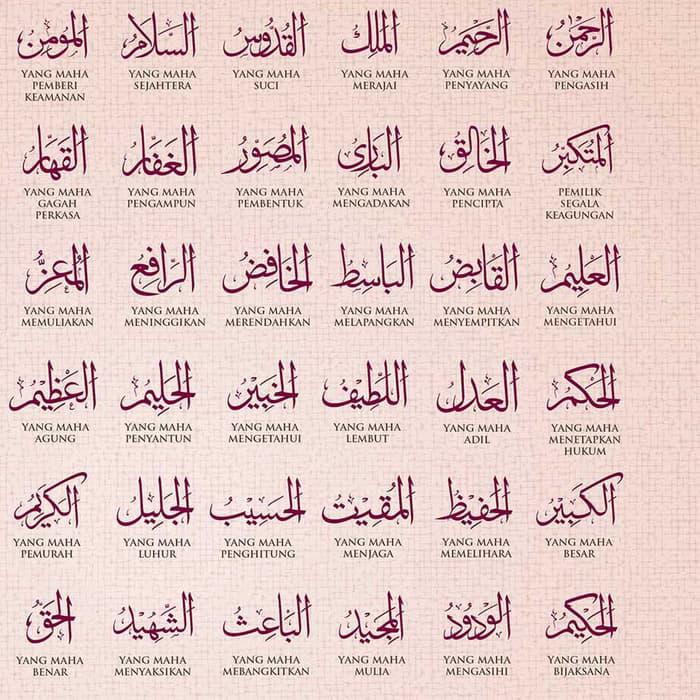 الرَّحْمٰنُ
YANG MAHA
PENGASIH
الرَّحِيْمُ
YANG MAHA
PENYAYANG
المَلِكُ
YANG MAHA
MERAJAI
القُدُّوسُ
YANG MAHA
SUCI
السَّلَامُ
YANG MAHA
SEJAHTERA
المُؤمِنُ
YANG MAHA
PEMBERI
KEAMANAN
المُتَكَبِّرُ
PEMILIK
SEGALA
KEAGUNGAN
الخَالِقُ
YANG MAHA
PENCIPTA
البَارِئُ
YANG MAHA
MENGADAKAN
المُصَوِّرُ
YANG MAHA
PEMBENTUK
الغَفَّارُ
YANG MAHA
PENGAMPUN
القَهَّارُ
YANG MAHA
GAGAH
PERKASA
العَلِيْمُ
YANG MAHA
MENGETAHUI
القَابِضُ
YANG MAHA
MENYEMPITKAN
البَاسِطُ
YANG MAHA
MELAPANGKAN
الخَافِضُ
YANG MAHA
MERENDAHKAN
الرَّافِعُ
YANG MAHA
MENINGGIKAN
المُعِزُّ
YANG MAHA
MEMULIAKAN
الحَكَمُ
YANG MAHA
MENETAPKAN
HUKUM
العَدْلُ
YANG MAHA
ADIL
اللَّطِيْفُ
YANG MAHA
LEMBUT
الخَبِيْرُ
YANG MAHA
MENGETAHUI
الحَلِيْمُ
YANG MAHA
PENYANTUN
العَظِيْمُ
YANG MAHA
AGUNG
الكَبِيْرُ
YANG MAHA
BESAR
الحَفِيْظُ
YANG MAHA
MEMELIHARA
المُقِيْتُ
YANG MAHA
MENJAGA
الحَسِيْبُ
YANG MAHA
PENGHITUNG
الجَلِيْلُ
YANG MAHA
LUHUR
الكَرِيْمُ
YANG MAHA
PEMURAH
الحَكِيْمُ
YANG MAHA
BIJAKSANA
الوَدُوْدُ
YANG MAHA
MENGASIHI
المَجِيْدُ
YANG MAHA
MULIA
البَاعِثُ
YANG MAHA
MEBANGKITKAN
الشَّهِيْدُ
YANG MAHA
MENYAKSIKAN
الحَقُّ
YANG MAHA
BENAR